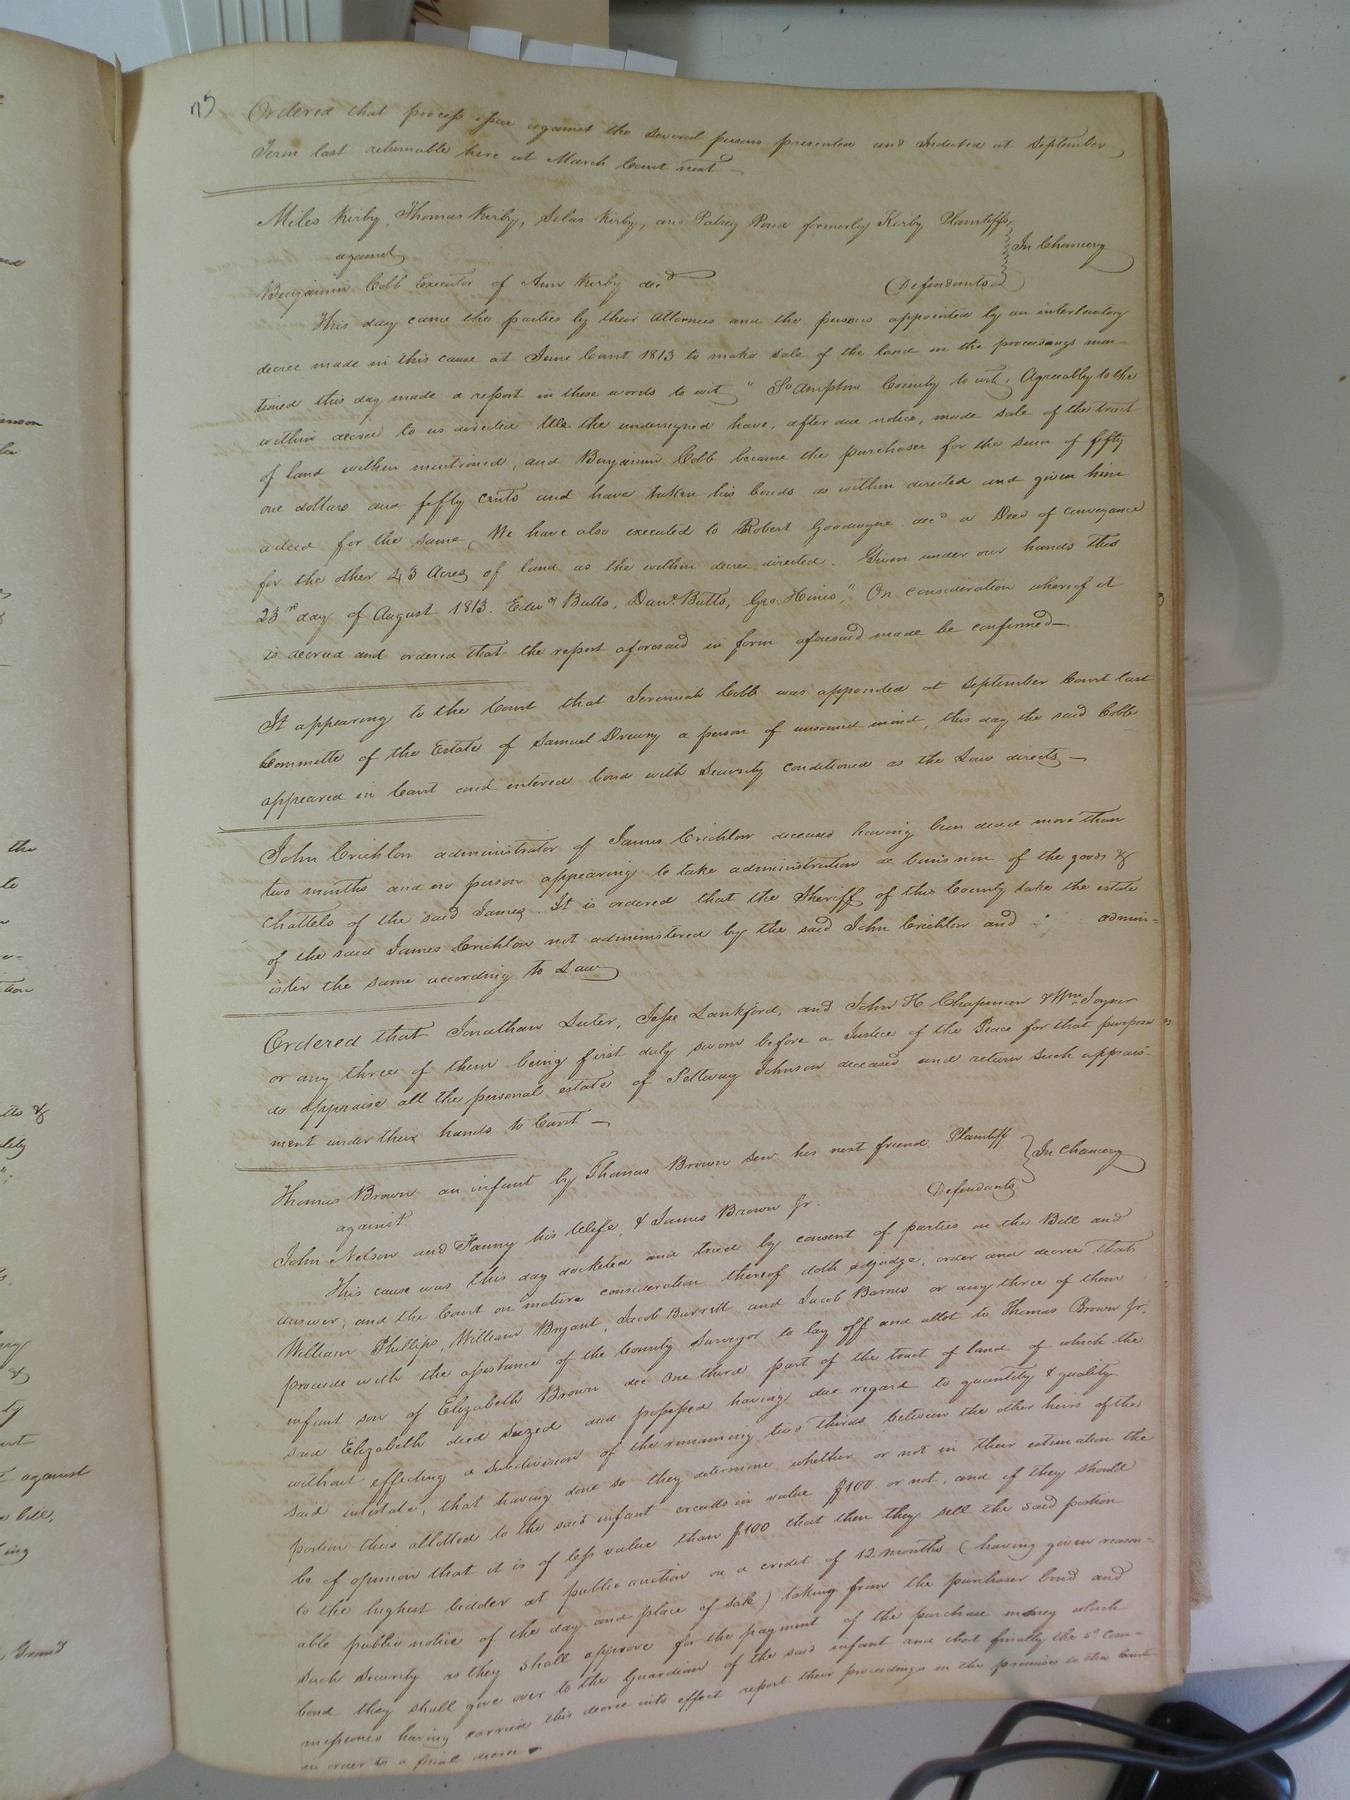 Ordered that process issue against the several persons presented and Indicted at September
Term last returnable here at March Court next
Miles Kirby, Thomas Kirby, Silas Kirby, and Patsey Pond formerly Kirby Plaintiffs
In Chancery
against
Benjamin Cobb Executor of Ann Kirby decd Defendants
This day came the parties by their attornies and the persons appointed by an interlocutory
decree made in this cause at June Court 1813 to make sale of the land in the proceedings men-
tioned this day made a report in these words to wit, "So.ampton County to wit, Agreeably to the
within decree to us directed We the undersigned have, after due notice, made sale of the tract
of land within mentioned, and Benjamin Cobb became the purchaser for the sum of fifty
one dollars and fifty cents and have taken his bonds as within directed and given him
a deed for the same, We have also executed to Robert Goodwyne decd a Deed of conveyance
for the other 43 Acres of land as the within decree directed. Given under our hands this
23rd day of August 1813. Edwd Butts, Danl Butts, Geo. Hines," On consideration whereof it
is decreed and ordered that the report aforesaid in form aforesaid made be confirmed
It appearing to the Court that Jeremiah Cobb was appointed at September Court last
Committe of the Estate of Samuel Drewry a person of unsound mind, this day the said Cobb
appeared in Court and entered bond with Security conditioned as the Law directs
John Crichlow administrator of James Crichlow deceased having been dead more than
two months and no person appearing to take administration de bonis non of the goods &
Chattels of the said James. It is ordered that the Sheriff of this County take the estate
of the said James Crichlow not administered by the said John Crichlow and admin=
ister the same according to Law
Ordered that Jonathan Luter, Jesse Lankford, and John H Chapman & Wm. Joyner
or any three of them being first duly sworn before a Justice of the Peace for that purpose
do appraise all the personal estate of Pettway Johnson deceased and return such apprais-
ment under their hands to Court
Thomas Brown an infant by Thomas Brown Senr his next friend Plaintiff
In Chancery
against
Defendants
John Nelson and Fanny his Wife, & James Brown Jr.
This cause was this day docketed and tried by consent of parties on the Bill and
answer, and the Court on mature consideration thereof doth adjudge, order and decree that
William Phillips, William Bryant, Jacob Barrett and Jacob Barnes or any three of them
proceede with the assistance of the County Surveyor to lay off and allot to Thomas Brown Jr,
infant son of Elizabeth Brown dec One third part of the tract of land of which the
said Elizabeth died seized and possessed having due regard to quantity & quality
without effecting a subdivision of the remaining two thirds between the other heirs of the
said intestate; that having done so they determine whether or not in their estimation the
portion thus allotted to the said infant exceeds in value $100 or not, and if they should
be of opinion that it is of less value than $100 that then they sell the said portion
to the highest bidder at public auction on a credit of 12 months (having given reason-
able public notice of the day and place of sale) taking from the purchaser bond and
such security as they shall approve for the payment of the purchase money which
bond they shall give over to the Guardian of the said infant and that finally the sd Com-
missioners having carried this decree into effect report their proceedings in the premises to this Court
in order to a final decree